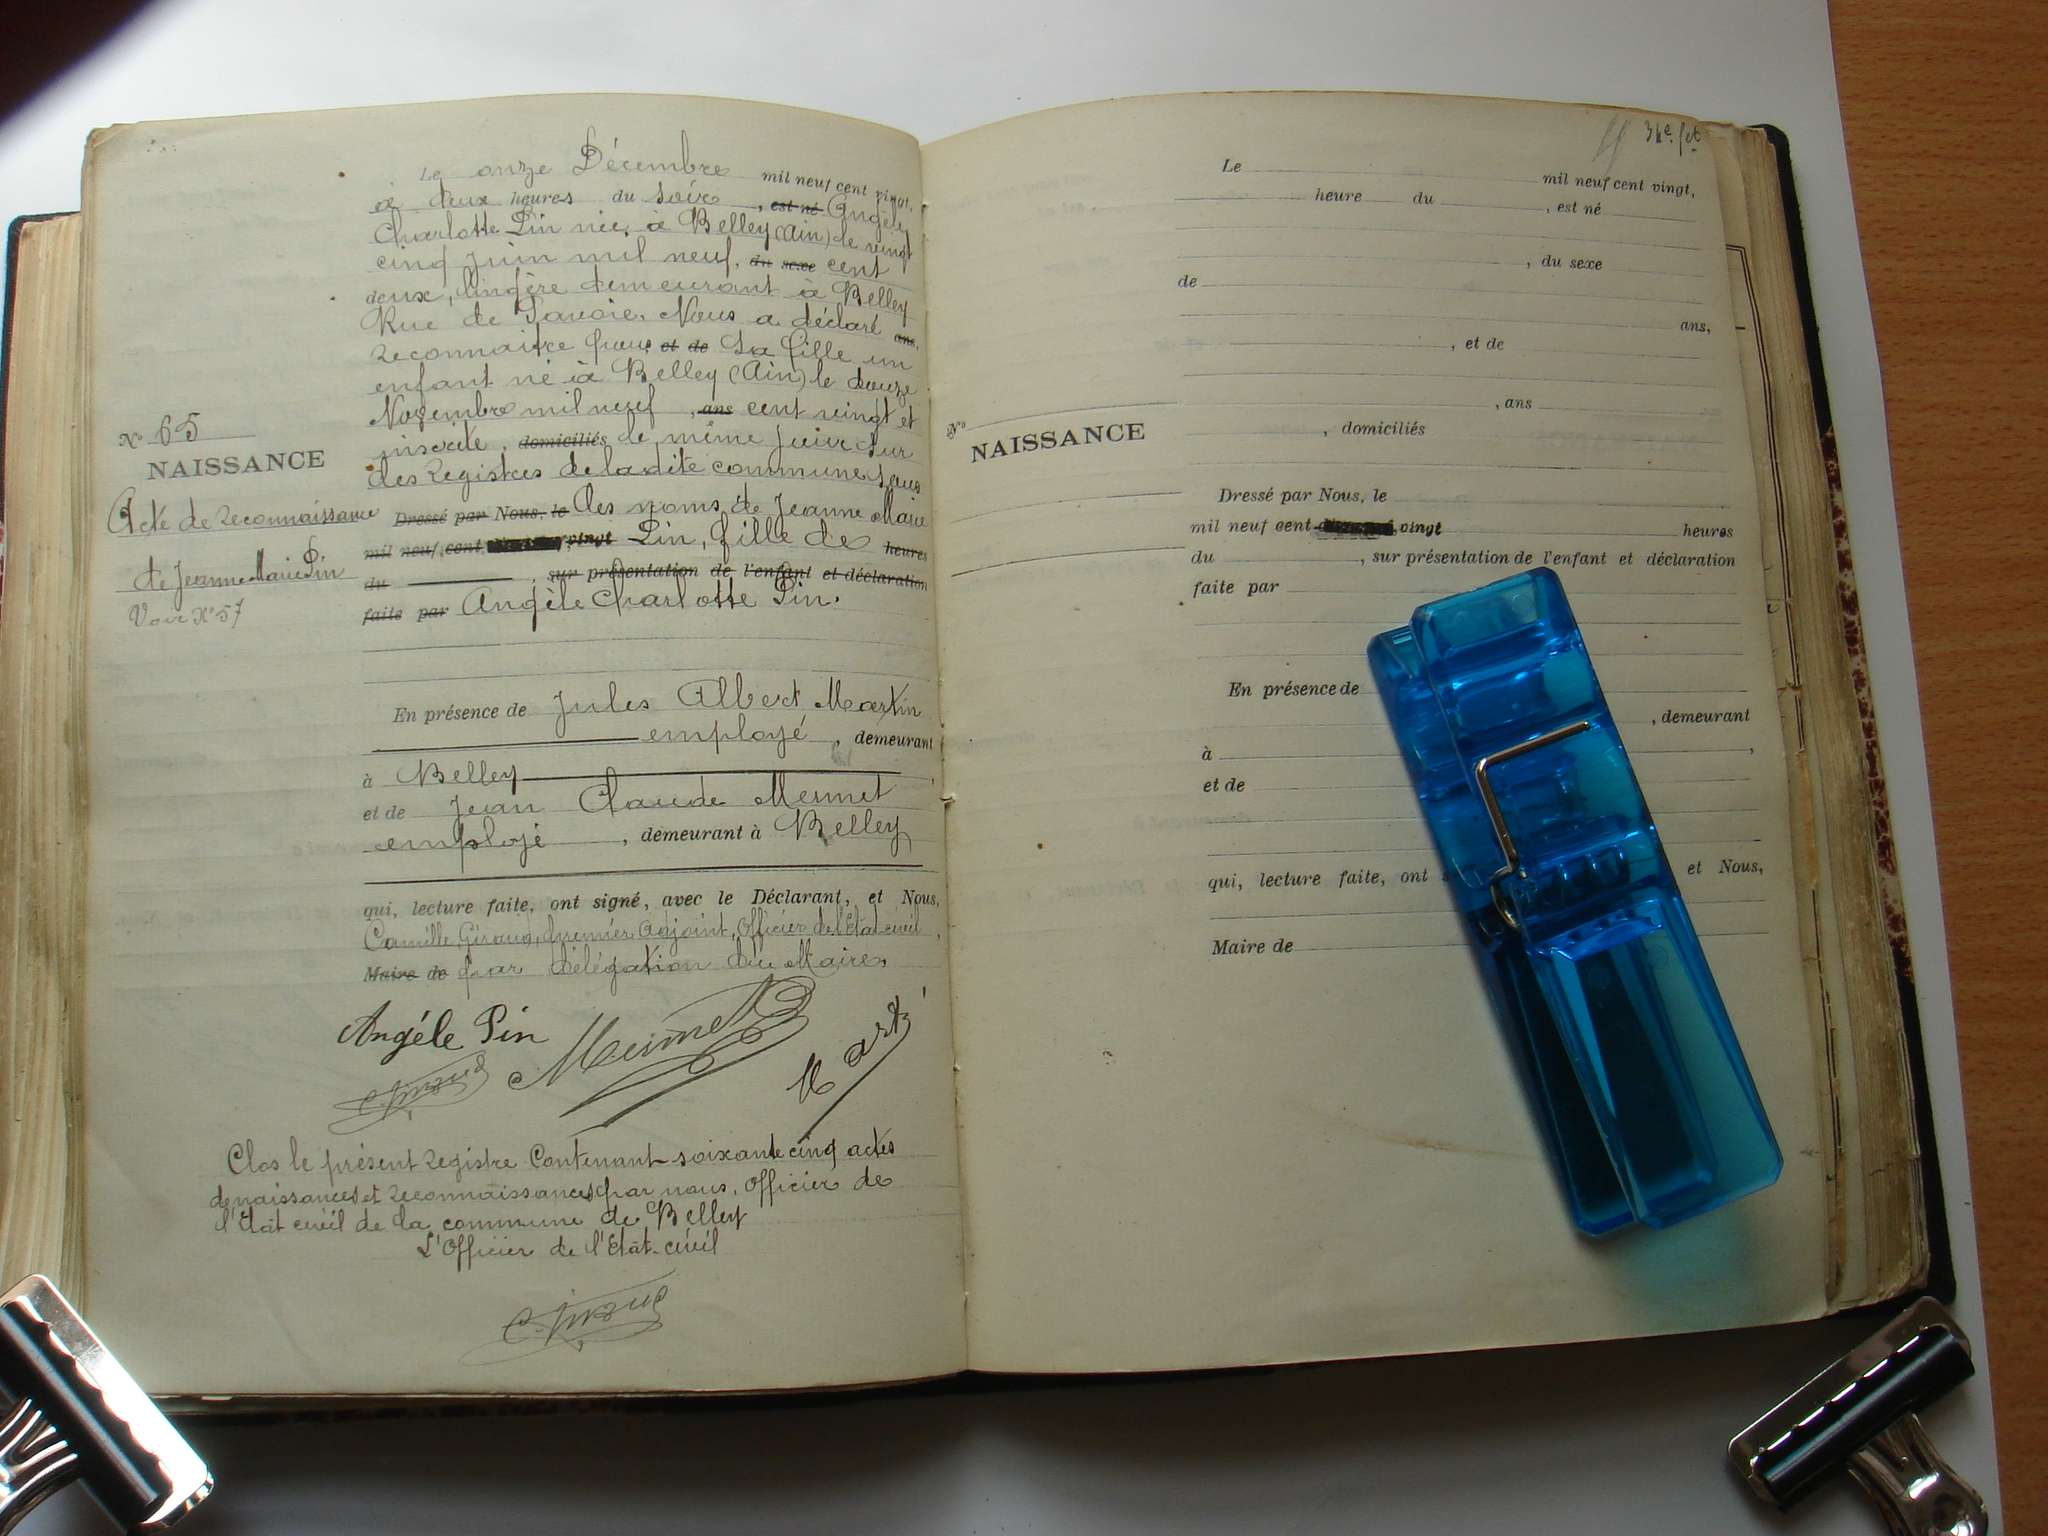 Le onze Décembre mil neuf cent vingt,
à deux heures du soir, est né Angèle
Charlotte Pin née à Belley (Ain) le vingt
cinq juin mil neuf, du sexe cent
deux, lingère demeurant à Belley
Rue de Savoie. Nous a déclaré ans,
reconnaitre pour et de Sa fille un
enfant né à Belley (Ain) le douze
Novembre mil neuf, ans cent vingt et
inscrite, domiciliés de même jour sur
les Registres de ladite commune sous
Dressé par Nous, le les noms de Jeanne Marie
mil neuf cent vingt Pin, fille de heures
du, sur présentation de l'enfant et déclaration
faite par Angèle Charlotte Pin.
N° 65
NAISSANCE
Acte de reconnaissance
de Jeanne Marie Pin
Voir N° 57
En présence de Jules Albert Martin
employé, demeurant
à Belley,
et de Jean Claude Mermet
employé, demeurant à Belley
qui, lecture faite, ont signé, avec le Déclarant, et Nous,
Camille Giraud, premier Adjoint, Officier de l'Etat-civil,
Maire de par délégation du Maire.
Angéle Pin Mermet
C. Giraud
Clos le présent registre Contenant soixante cinq actes
de naissances et reconnaissances par nous, Officier de
l'Etat civil de la commune de Belley
L'Officier de l'Etat-civil
C. Giraud
Le mil neuf cent vingt,
heure du, est né
, du sexe
de
ans,
, et de
, ans
N°
NAISSANCE
, domiciliés
Dressé par Nous, le
mil neuf cent vingt heures
du, sur présentation de l'enfant et déclaration
faite par
En présence de
, demeurant
à,
et de
qui, lecture faite, ont et Nous,
Maire de